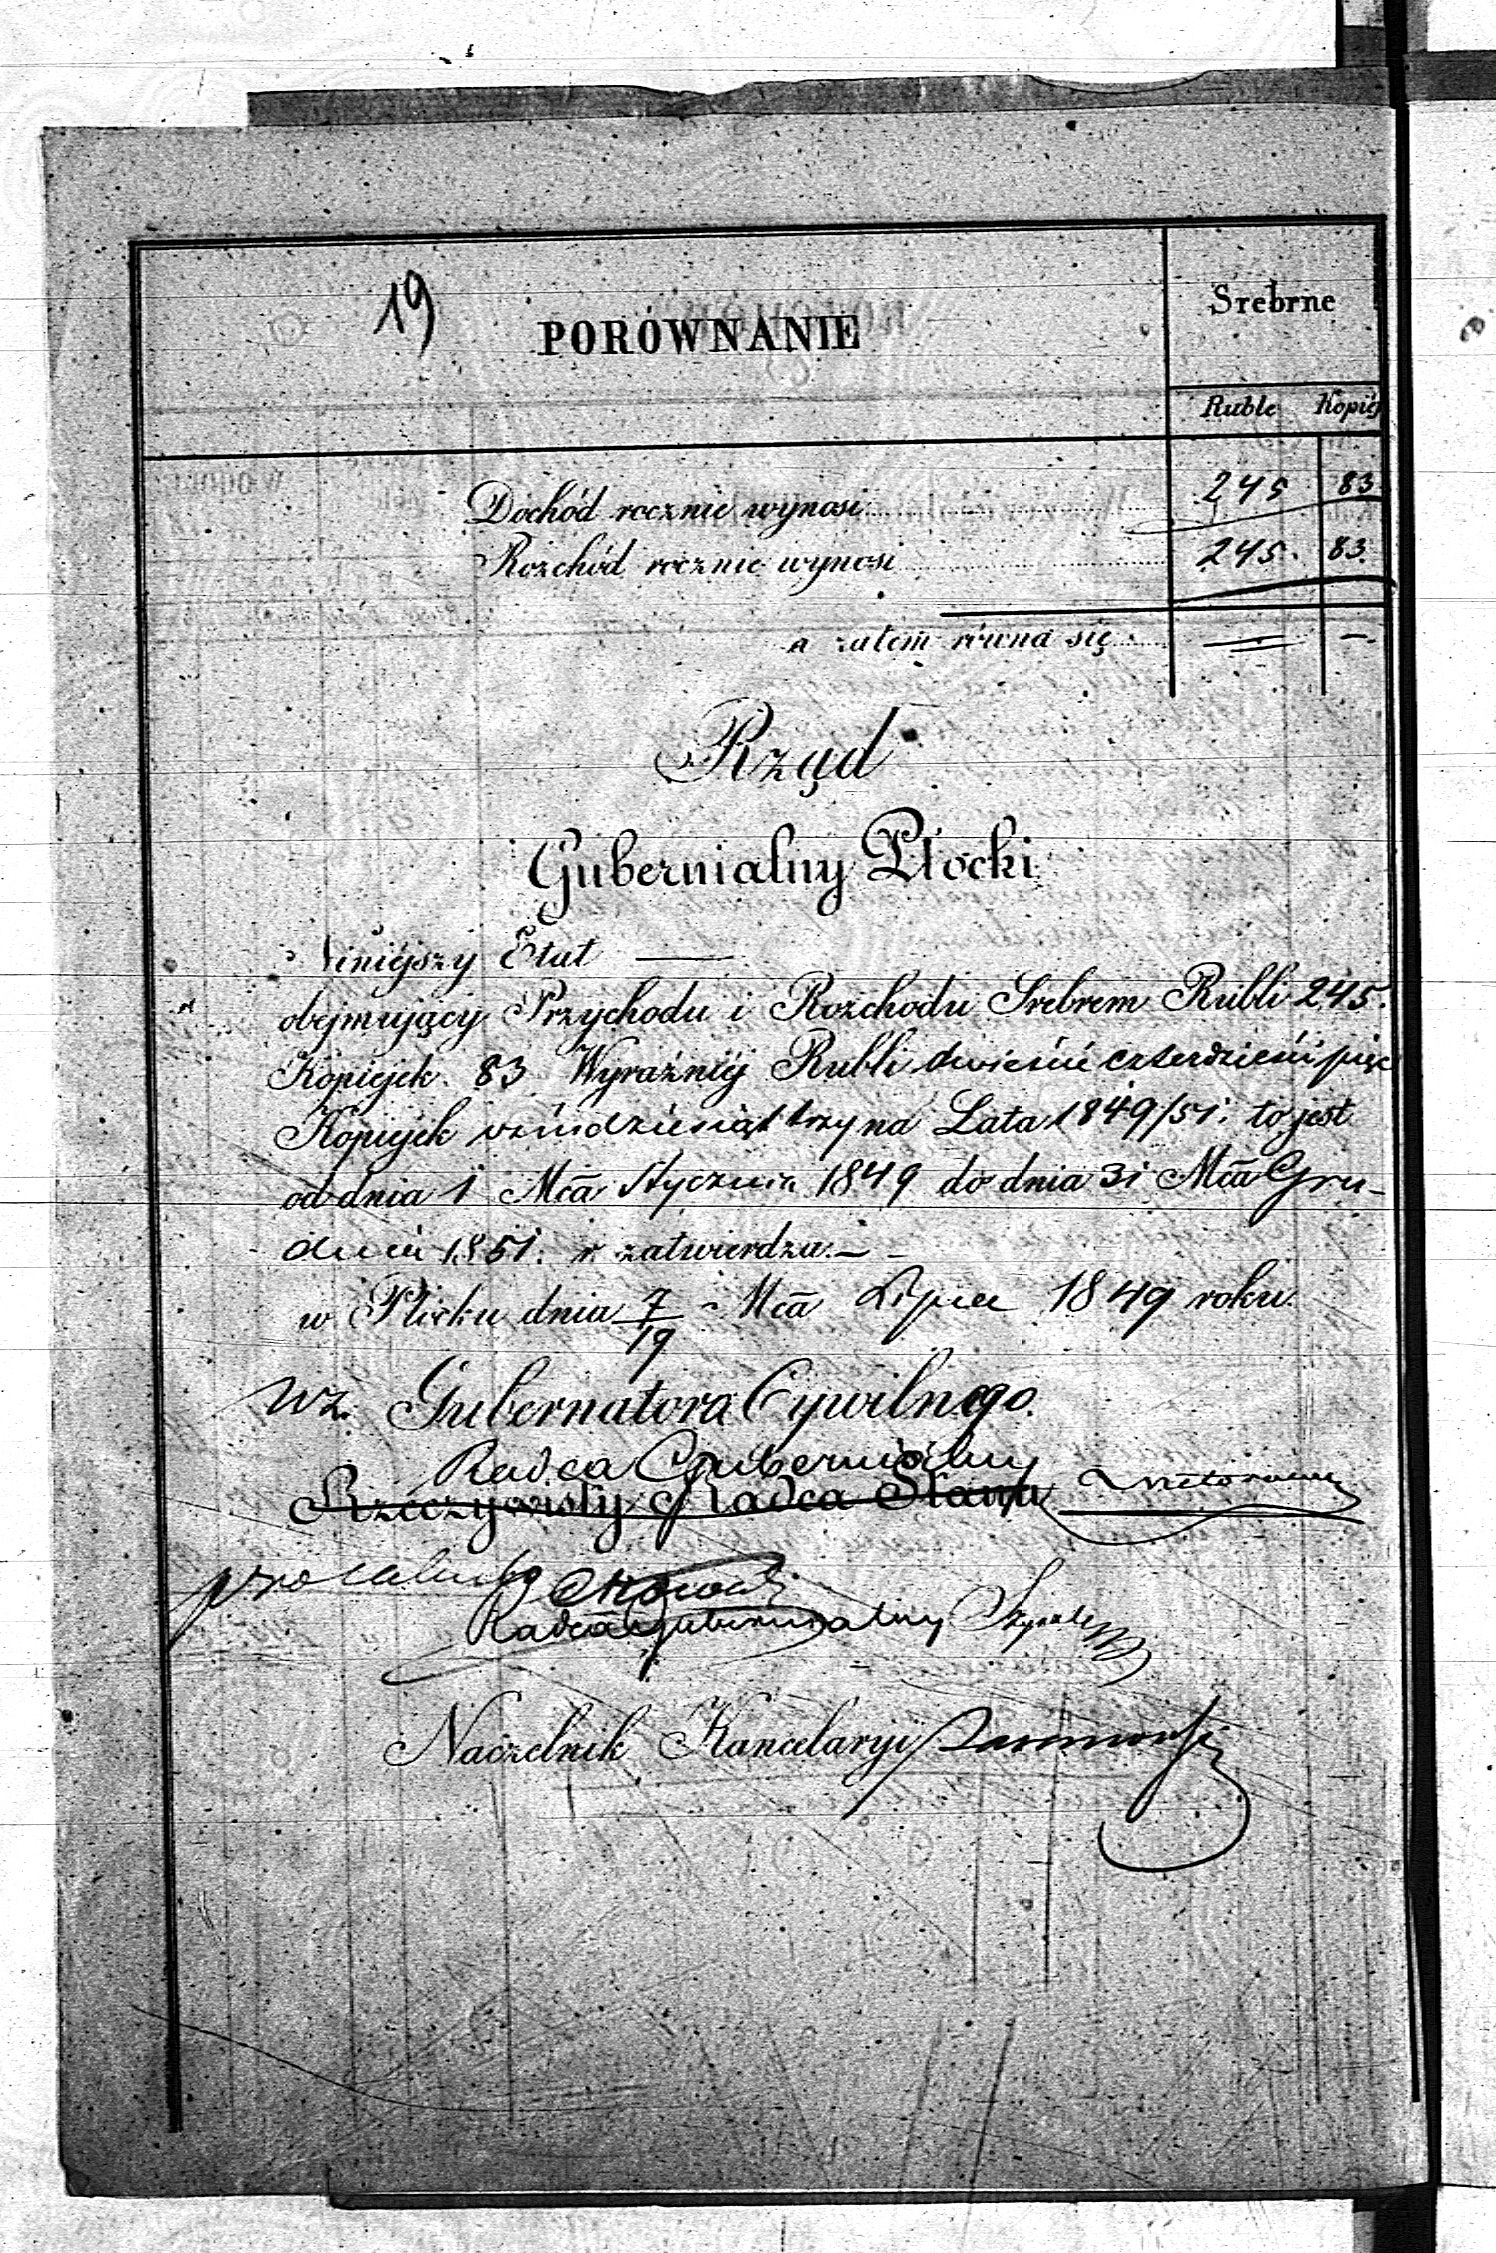 19
PORÓWNANIE
Srebrne
Ruble Kopiej
Dochód rocznie wynosi 245 83
Rozchód rocznie wynosi 245. 83.
a zatem równa się — —
Rząd
Gubernialny Płocki
Niniejszy Etat —
obejmujący Przychodu i Rozchodu Srebrem Rubli 245.
Kopiejek 83 Wyraźniej Rubli dwieście czterdzieści pięć
Kopiejek ośmdziesiąt trzy na Lata 1849/51. to jest
od dnia 1 Mca Stycznia 1849 do dnia 31 Mca Gru-
dnia 1851. r. zatwierdza. —
w Płocku dnia 7/19 Mca Lipca 1849 roku.
wz. Gubernatora Cywilnego.
Radca Gubernialny
Rzeczywisty Radca Stanu
Radca Gubernialny
Naczelnik Kancelaryi